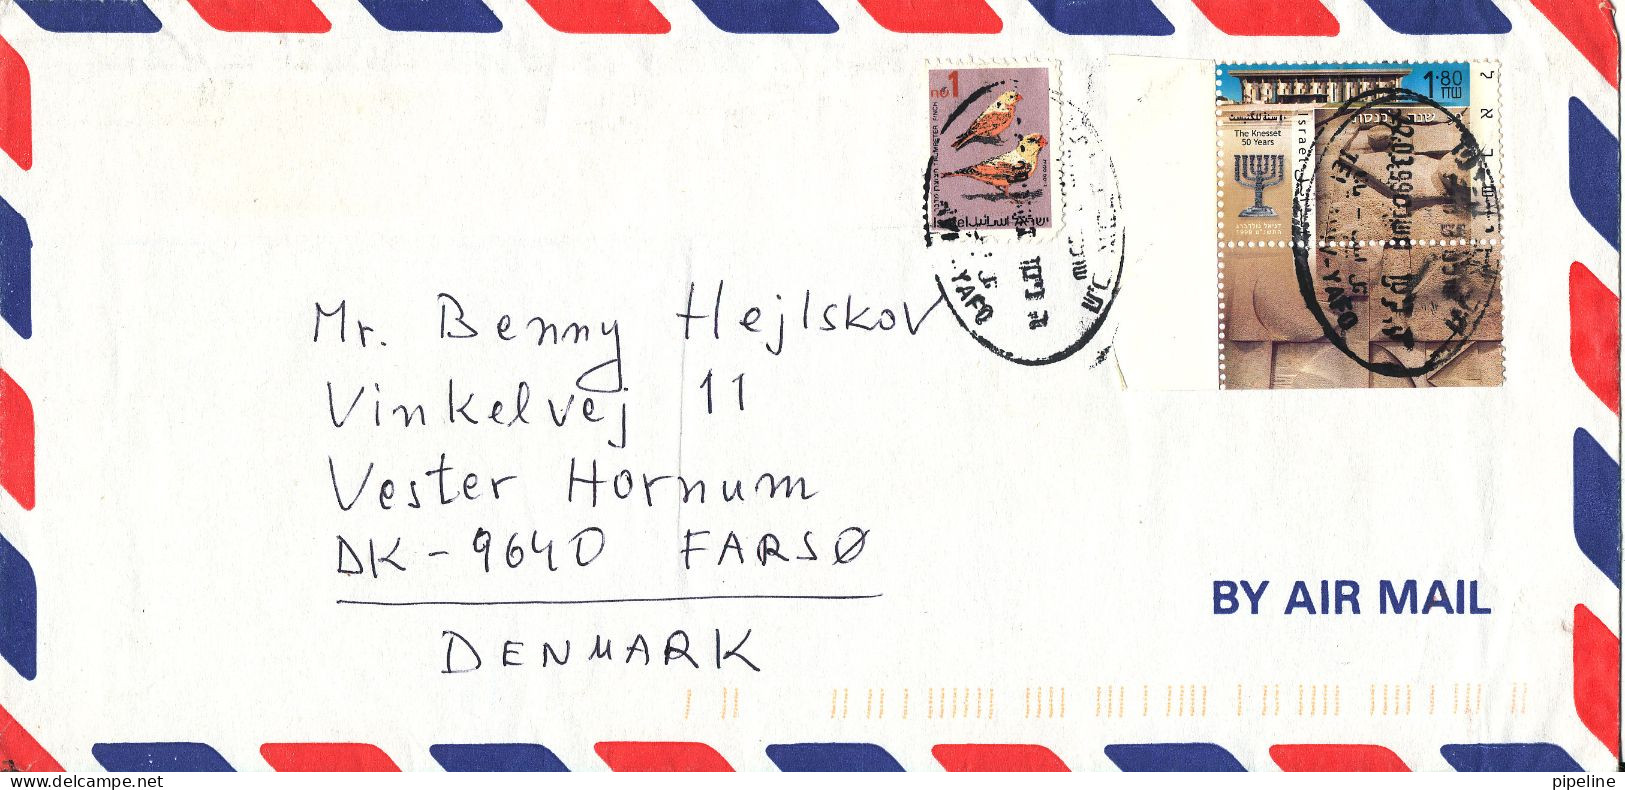 Mr. Benny Hejlskov
Vinkelvej 11
Vester Hornum
DK-9640 FARSØ
DENMARK
BY AIR MAIL
1
TRUMPETER FINCH
Israel اسرائيل ישראל
YAFO
1.80
The Knesset
50 Years
Israel
1999
YAFO
www.delcampe.net
pipeline